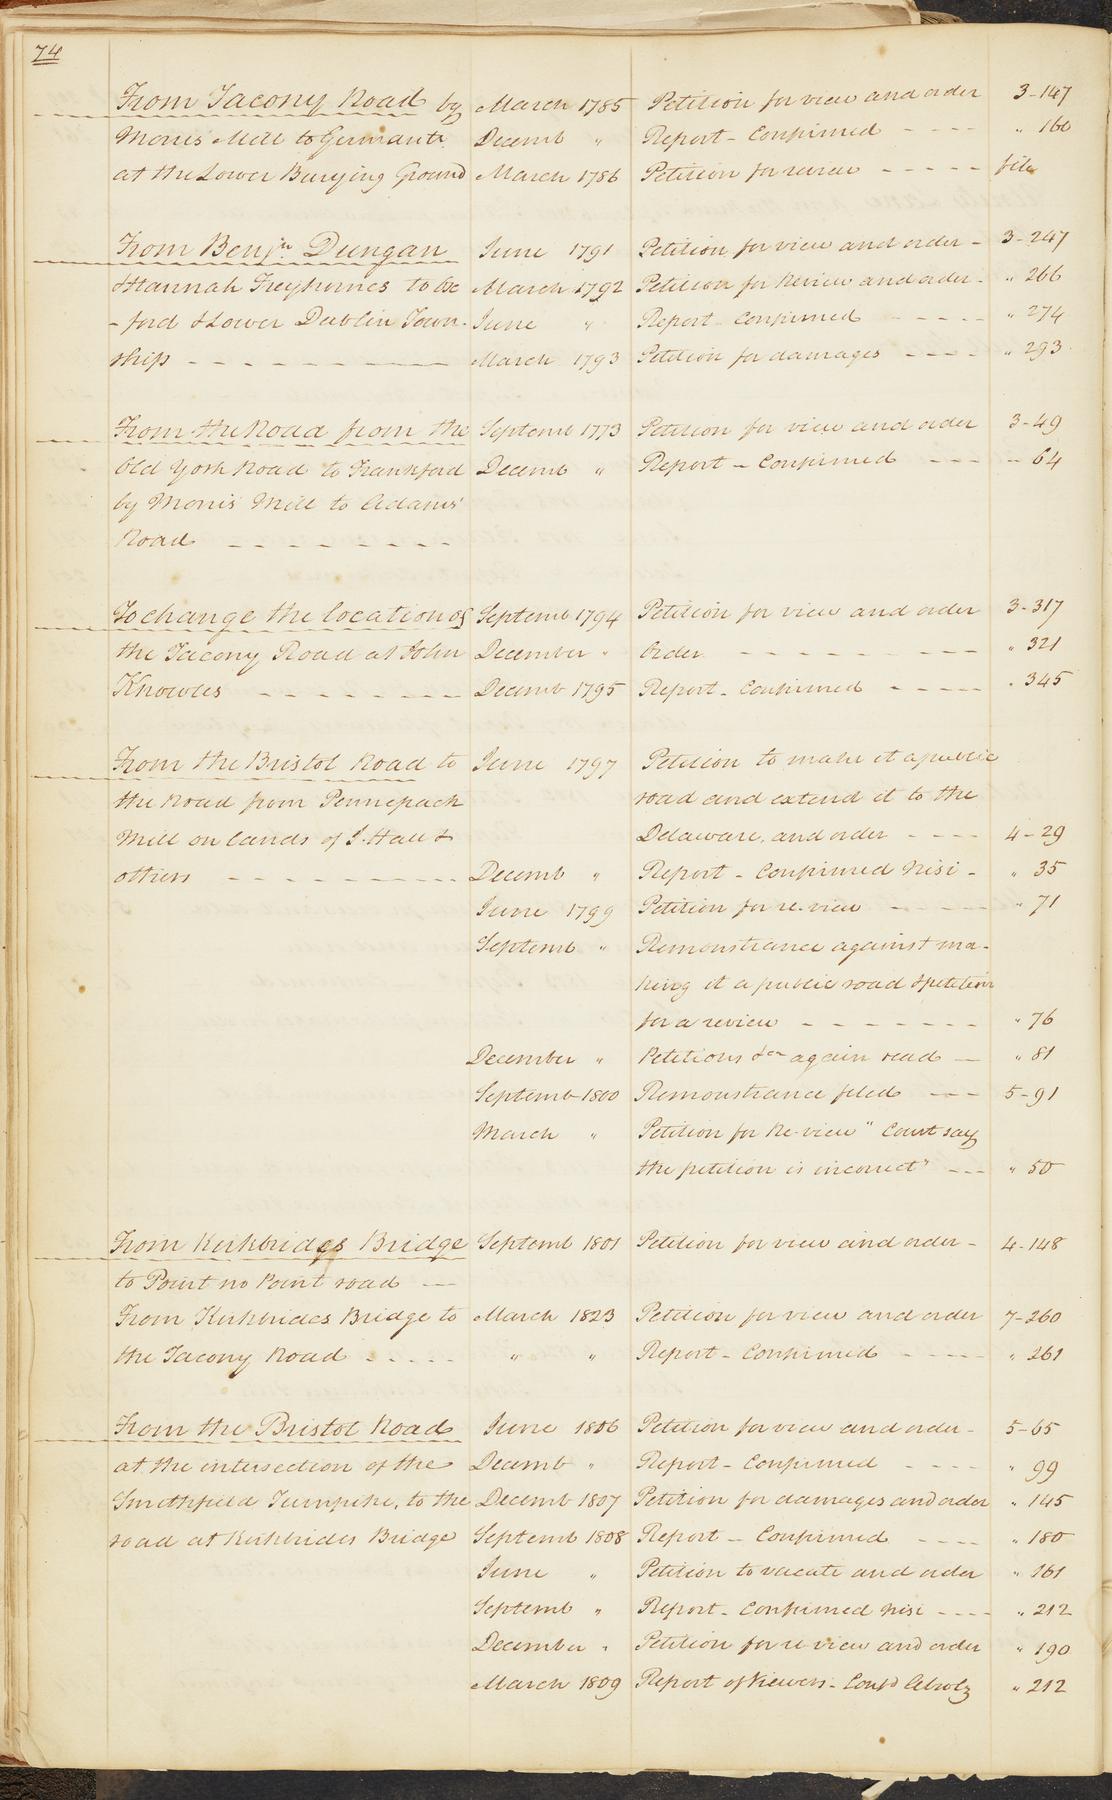 74
From Tacony Road by March 1785 Petition for view and order 3-147
Morris Mill to Germantn Decemb " Report - Confirmed - - - - " 160
at the Lower Burying Ground March 1786 Petition for review - - - - - file
From Benjn Dungan June 1791 Petition for view and order - 3-247
& Hannah to Ox March 1792 Petition for Review and order - " 266
- ford & Lower Dublin Town- June " Report - Confirmed - - - - - " 274
ship - - - - - - - - - March 1793 Petition for damages - - - - " 293
From the Road from the Septemb 1773 Petition for view and order 3-49
Old York Road to Frankford Decemb " Report - Confirmed - - - " 64
by Morris Mill to Adams'
Road - - - - - - - -
To change the location of Septemb 1794 Petition for view and order 3-317
the Tacony Road at John December " Order - - - - - - - - - " 321
Knowles - - - - - - - - Decemb 1795 Report - Confirmed - - - - " 345
From the Bristol Road to June 1797 Petition to make it a public
the Road from Pennepack road and extend it to the
Mill on lands of J. Hall & Delaware, and order - - - - 4-29
others - - - - - - - - - Decemb " Report - Confirmed Nisi - " 35
June 1799 Petition for re-view - - - - - " 71
Septemb " Remonstrance against ma-
king it a public road & petition
for a review - - - - - - - " 76
December " Petitions &ca again read - " 81
Septemb 1800 Remonstrance filed - - - 5-91
March " Petition for Re-view "Court say
the petition is incorrect" - - - " 50
From Kirkbrides Bridge Septemb 1801 Petition for view and order - 4-148
to Point no Point road -
From Kirkbrides Bridge to March 1823 Petition for view and order 7-260
the Tacony Road - - - - - " " Report - Confirmed - - - - - " 261
From the Bristol Road June 1806 Petition for view and order - 5-65
at the intersection of the Decemb " Report - Confirmed - - - - " 99
Smithfield Turnpike, to the Decemb 1807 Petition for damages and order " 145
road at Kirkbrides Bridge Septemb 1808 Report - Confirmed - - - - " 180
June " Petition to vacate and order " 161
Septemb " Report - Confirmed nisi - - - - " 212
December " Petition for re-view and order " 190
March 1809 Report of Viewers - Confd " 212